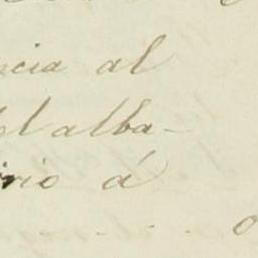 ncia al
el alba-
irio á